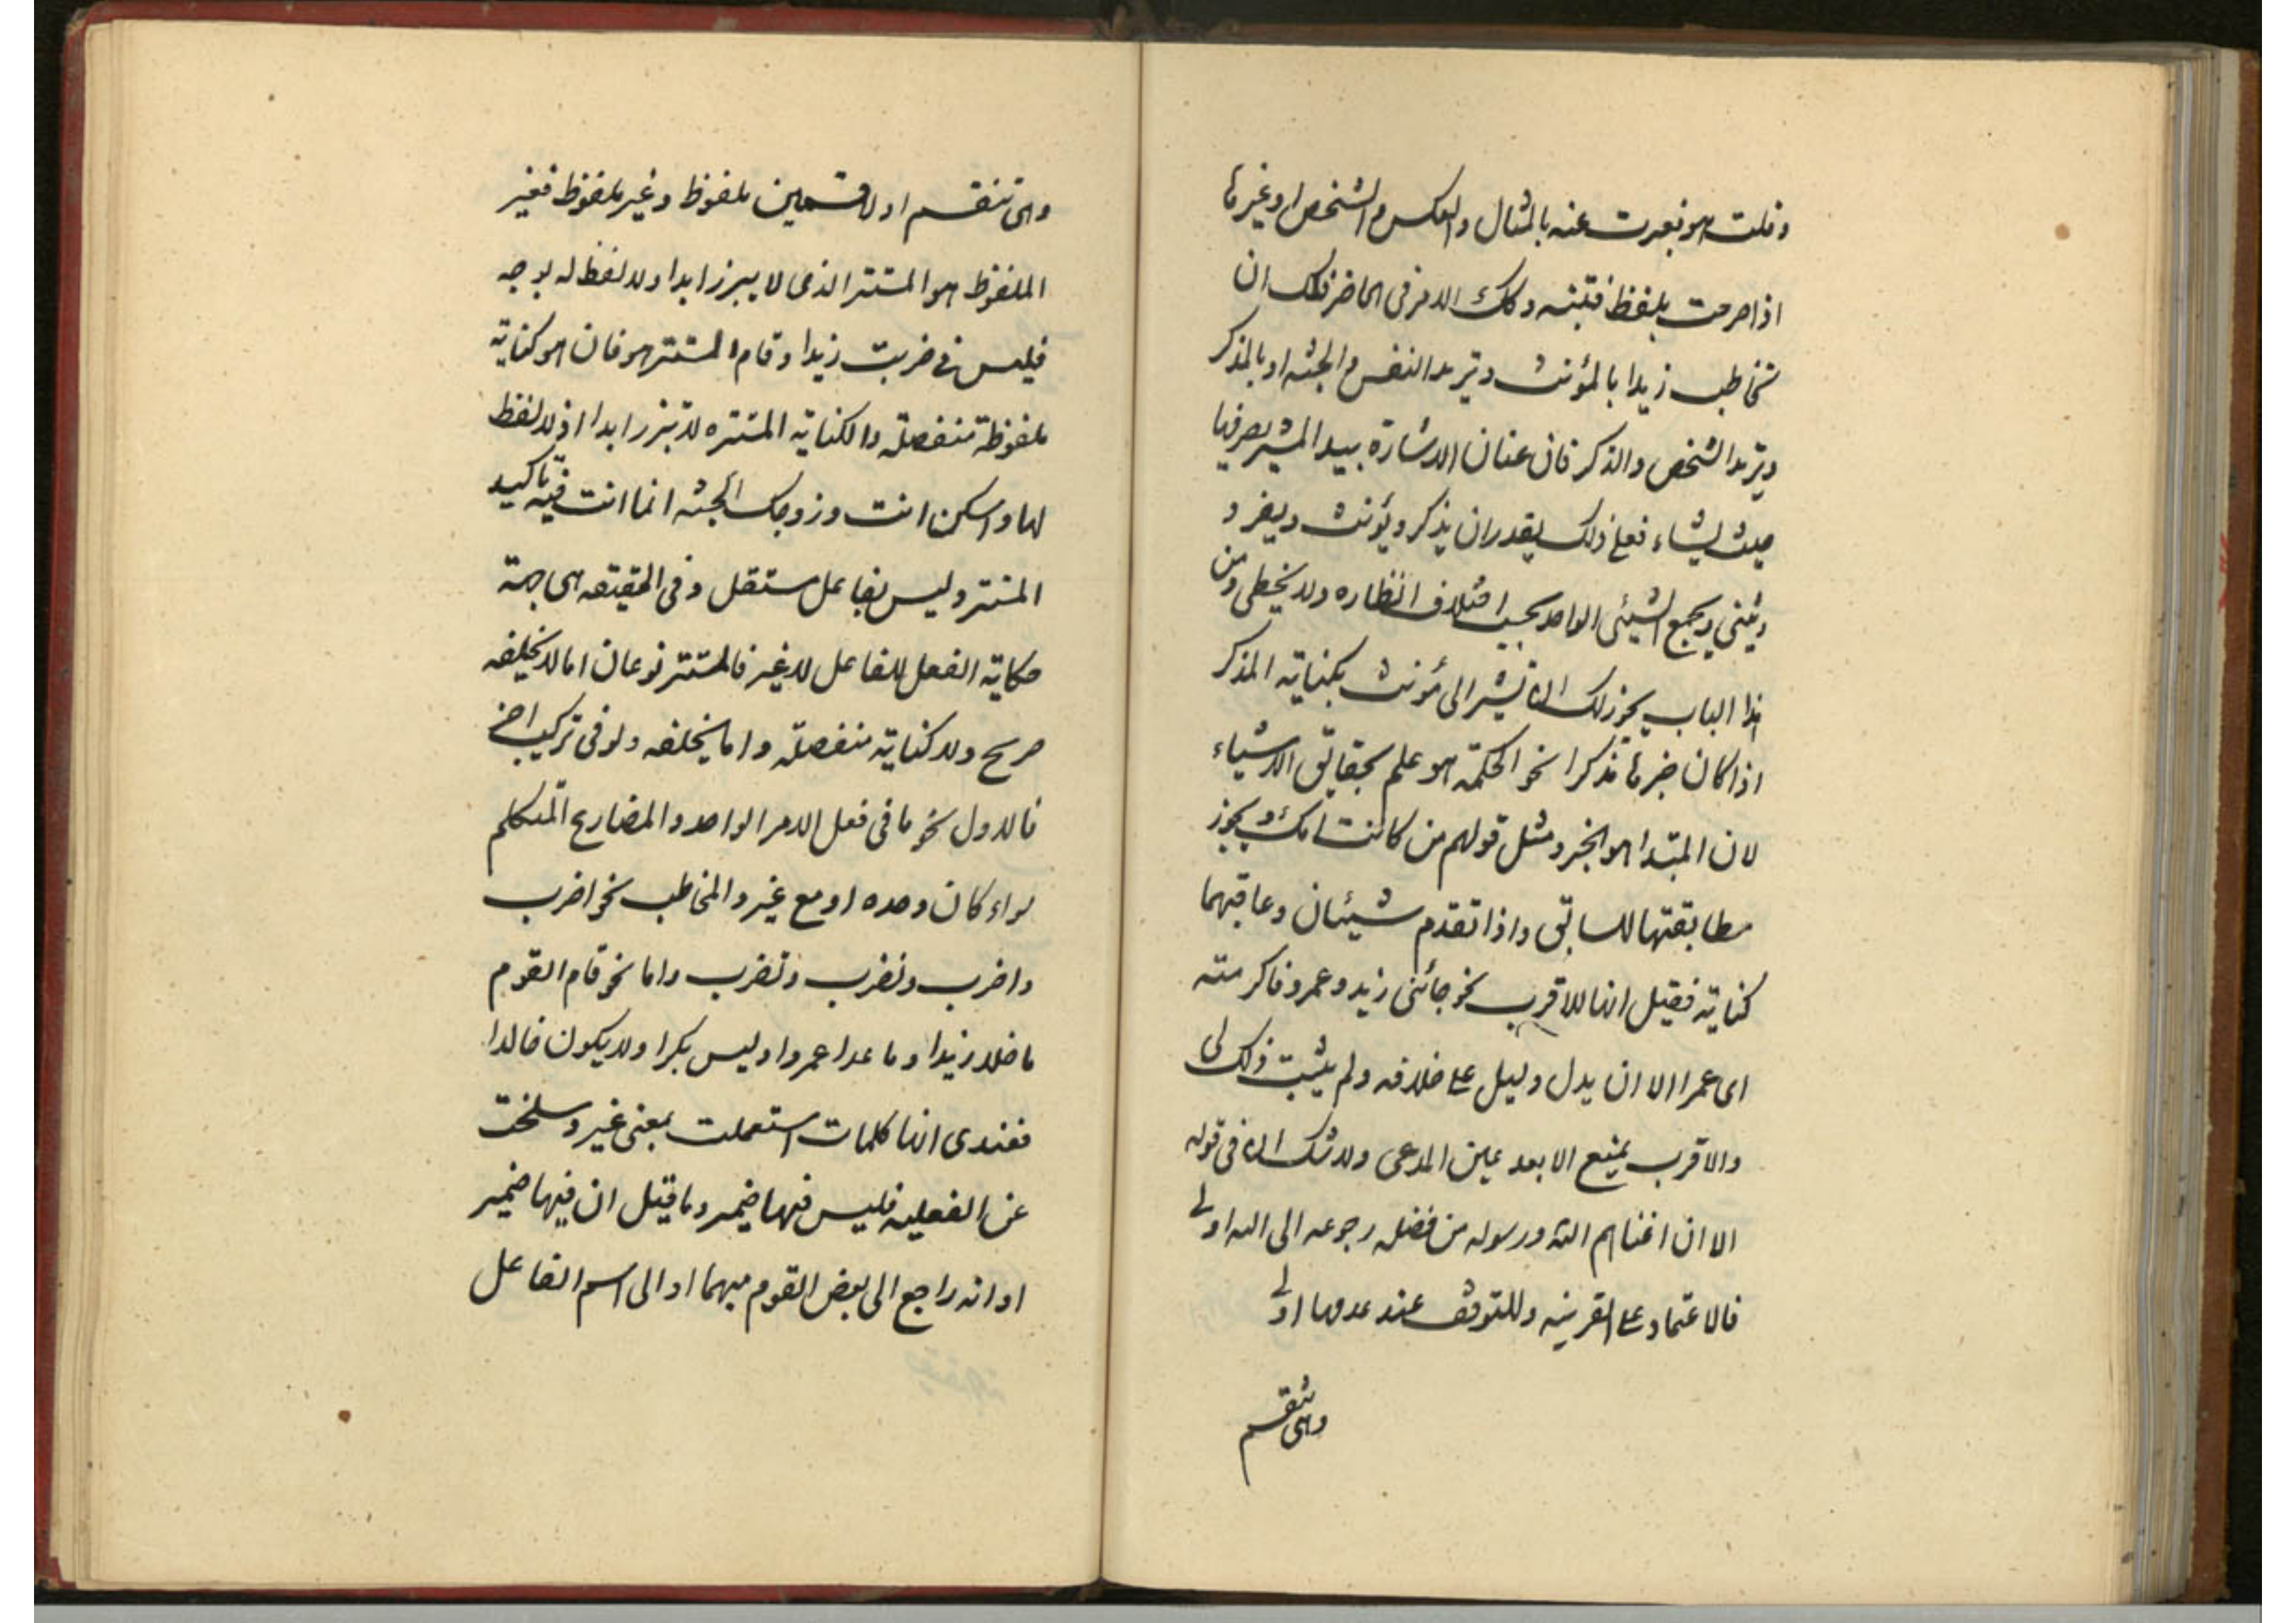 وقلت هو فعبرت عنه بالمثال والعكس والشخص او غيرها
اذا صرحت بلفظ فتبنه وكك الامر فى الحاضر فلك ان
تخاطب زيدا بالمؤنث وتريد النفس والجثه او بالمذكر
وتريد الشخص والذكر فان عنان الاشارة بيد المشير يصرفها
حيث يشاء فعلى ذلك يقدر ان يذكر ويؤنث ويفرد
ويثني ويجمع الشيئ الواحد بحسب اختلاف انظاره ولا يخطى ومن
هذا الباب يجوز لك ان تشير الى مؤنث بكناية المذكر
اذا كان خبرها مذكرا نحو الحكمة هو علم بحقايق الاشياء
لان المبتدا هو الخبر ومثل قولهم من كانت امك ويجوز
مطابقتها للسابق واذا تقدم شيئان وعاقبهما
كناية فقيل انها للاقرب نحو جائنى زيد وعمرو فاكرمته
اى عمرا الا ان يدل دليل على خلافه ولم يثبت ذلك لى
والاقرب يمنع الابعد عين المدعى ولا شك ان فى قوله
الا ان اغناهم الله ورسوله من فضله رجوعه الى الله اولى
فالاعتماد على القرينه وللتوقف عند عدمها اولى
وهى تنقسم
وهى تنقسم اولا قسمين ملفوظ وغير ملفوظ فغير
الملفوظ هو المستتر الذى لا يبرز ابدا ولا لفظ له بوجه
فليس فى ضربت زيدا وقام المستتر هو فان هو كناية
ملفوظة منفصلة والكناية المستتره لا تبرز ابدا اذ لا لفظ
لها واسكن انت وزوجك الجنه انما انت فيه تاكيد
المستتر وليس بفاعل مستقل وفى الحقيقه هى جهة
حكاية الفعل للفاعل لا غير فالمستتر نوعان اما لا يخلفه
صريح ولا كناية منفصلة واما يخلفه ولو فى تركيب اخر
فالاول نحو ما فى فعل الامر الواحد والمضارع المتكلم
سواء كان وحده او مع غيره والمخاطب نحو اضرب
واضرب ونضرب وتضرب واما نحو قام القوم
ما خلا زيدا وما عدا عمروا وليس بكرا ولا يكون خالدا
فعندى انها كلمات استعملت بمعنى غير وسلخت
عن الفعليه فليس فيها ضمير وما قيل ان فيها ضمير
او انه راجع الى بعض القوم مبهما او الى اسم الفاعل